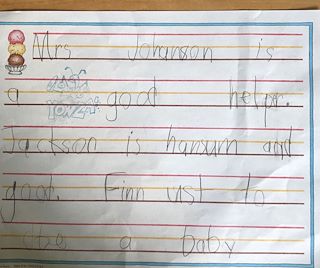 Mrs Johanson is
a good helpr.
Jackson is hansum and
good. Finn ust to
a baby